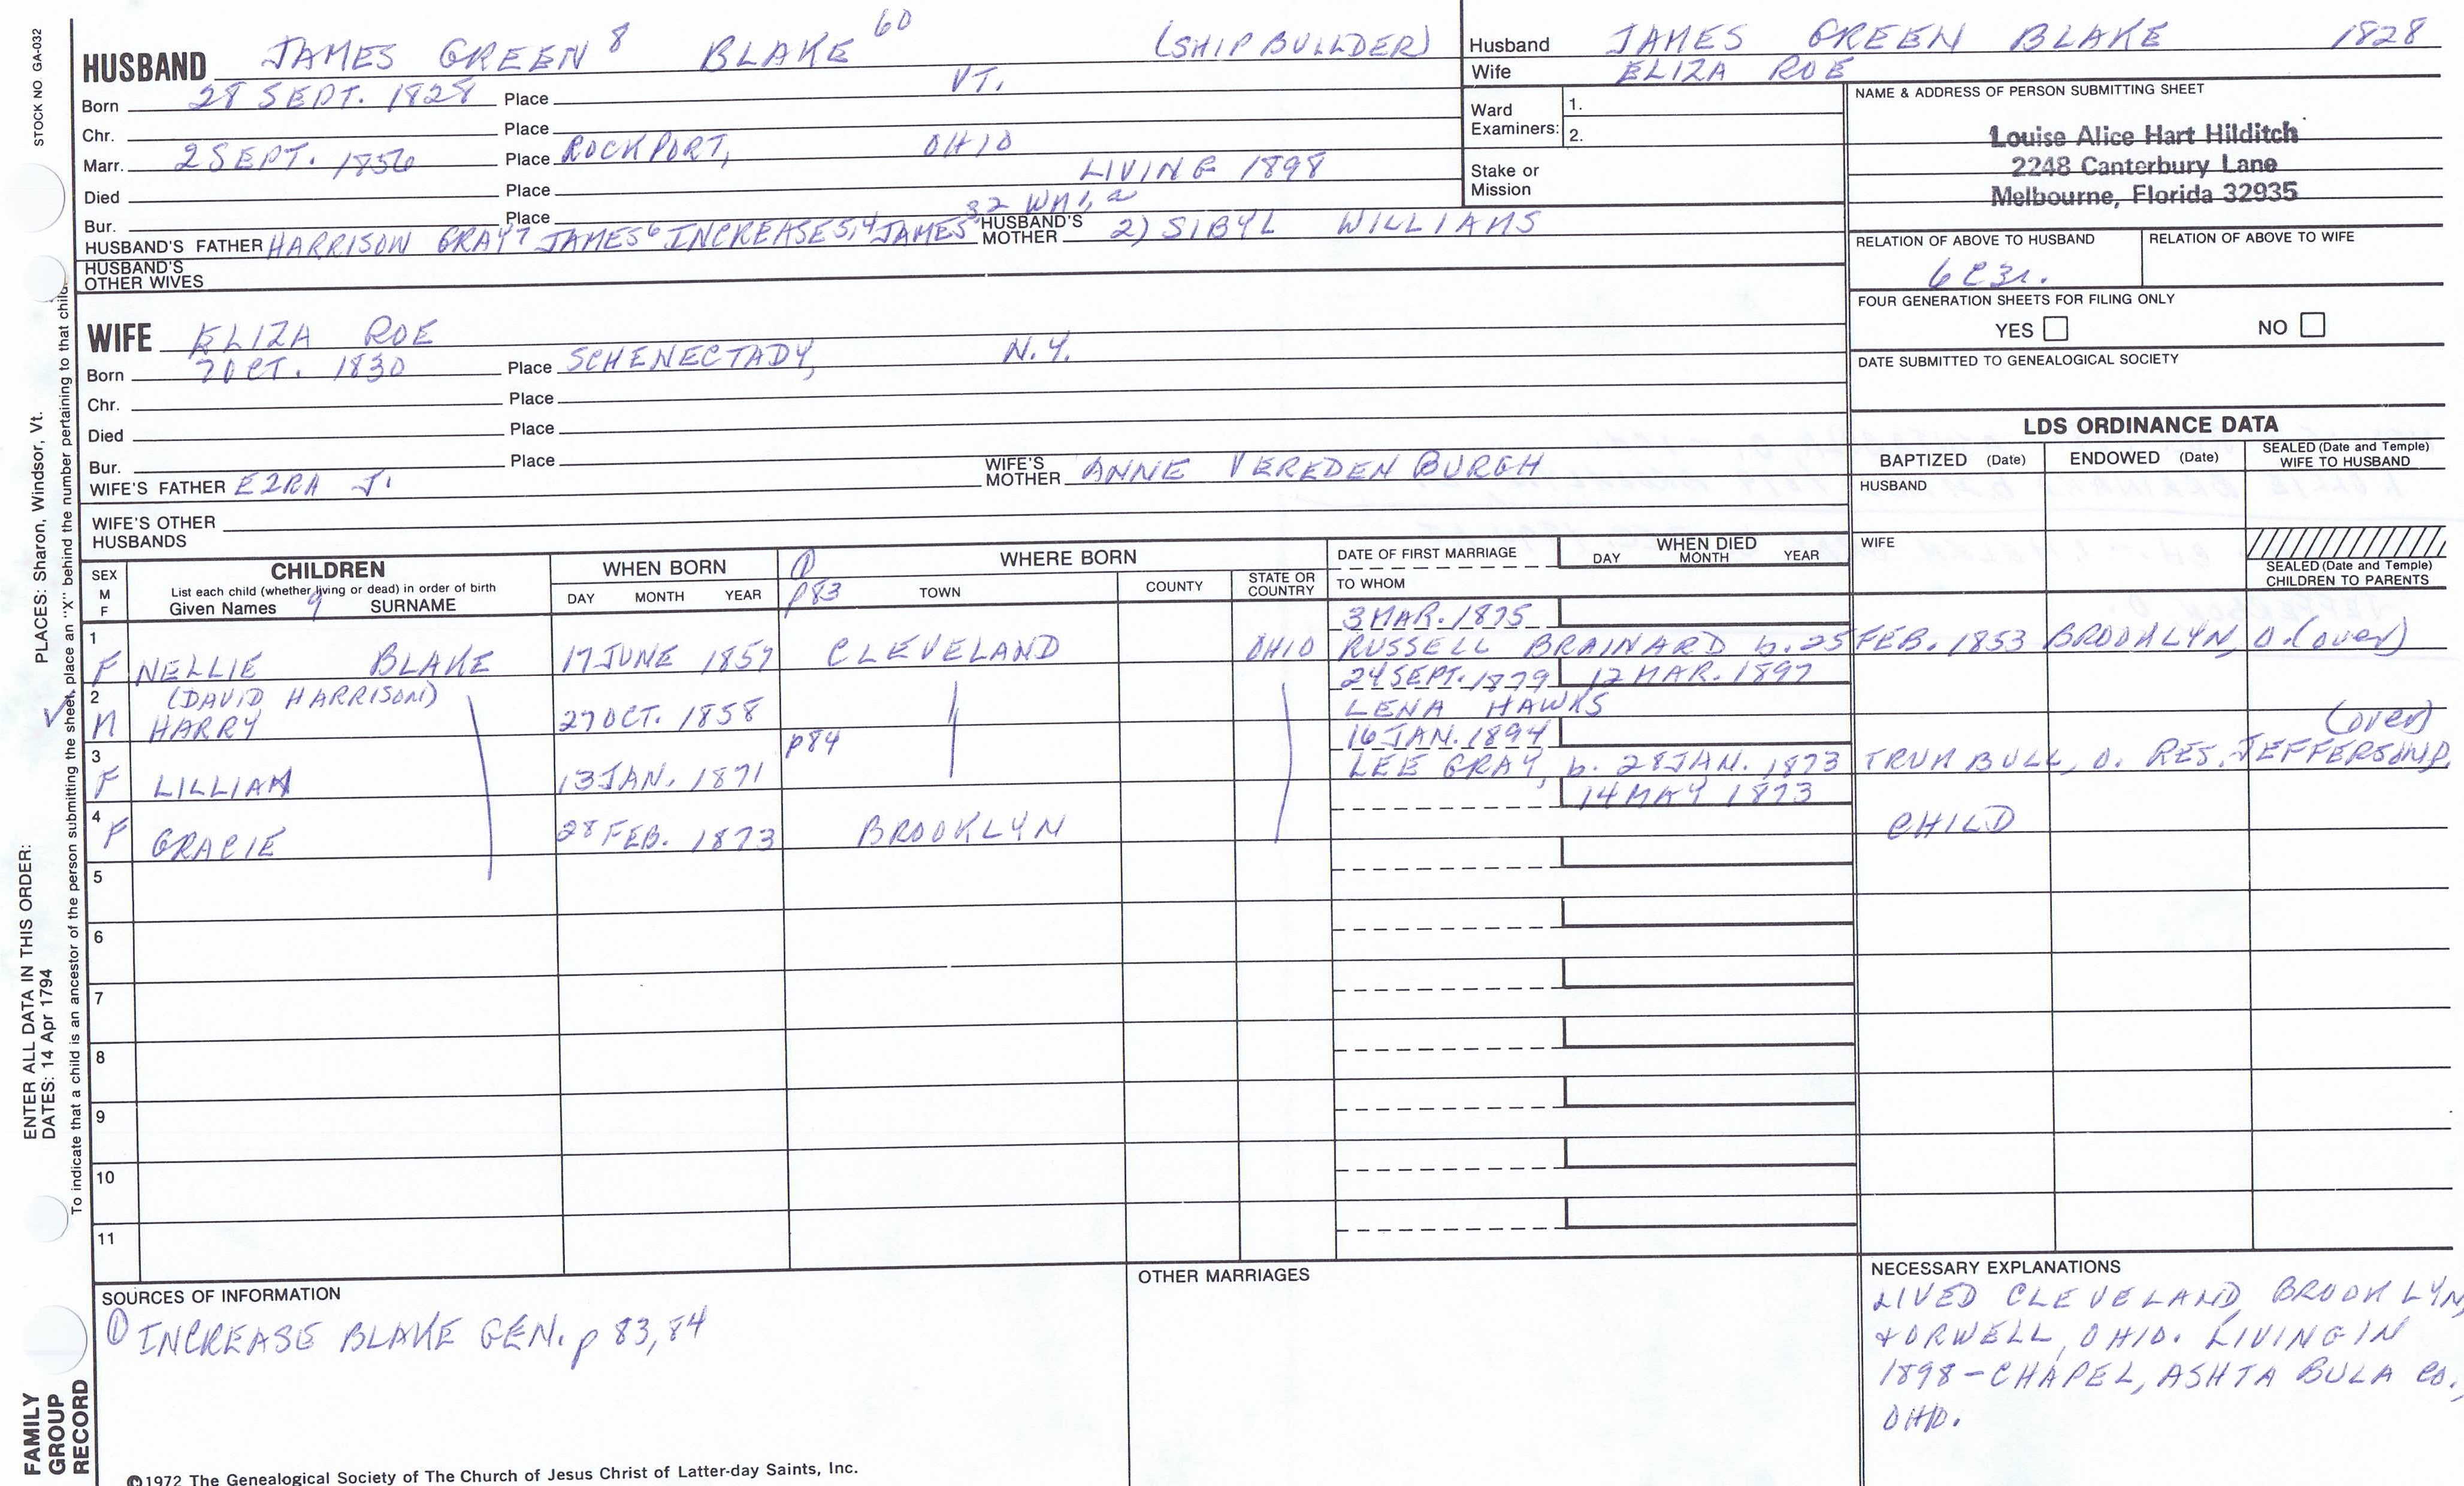 STOCK NO GA-032
HUSBAND JAMES GREEN 8 BLAKE 60 (SHIPBUILDER)
Born 28 SEPT. 1828 Place VT.
Chr. Place
Marr. 2 SEPT. 1856 Place ROCKPORT, OHIO
Died Place LIVING 1898
Bur. Place
HUSBAND'S FATHER HARRISON GRAY 7 JAMES 6 INCREASE 5,4 JAMES HUSBAND'S MOTHER 2) SIBYL WILLIAMS
HUSBAND'S OTHER WIVES
Husband JAMES GREEN BLAKE 1828
Wife ELIZA ROE
Ward Examiners: 1.
2.
Stake or Mission
NAME & ADDRESS OF PERSON SUBMITTING SHEET
Louise Alice Hart Hilditch
2248 Canterbury Lane
Melbourne, Florida 32935
RELATION OF ABOVE TO HUSBAND RELATION OF ABOVE TO WIFE
6C3r.
FOUR GENERATION SHEETS FOR FILING ONLY
YES NO
DATE SUBMITTED TO GENEALOGICAL SOCIETY
WIFE ELIZA ROE
Born 7 OCT. 1830 Place SCHENECTADY, N.Y.
Chr. Place
Died Place
Bur. Place
WIFE'S FATHER EZRA J. WIFE'S MOTHER ANNE VEREDEN BURGH
WIFE'S OTHER HUSBANDS
LDS ORDINANCE DATA
BAPTIZED (Date) ENDOWED (Date) SEALED (Date and Temple) WIFE TO HUSBAND
HUSBAND
WIFE
SEALED (Date and Temple) CHILDREN TO PARENTS
SEX M F
CHILDREN
List each child (whether living or dead) in order of birth
Given Names 9 SURNAME
WHEN BORN
DAY MONTH YEAR
① p83
WHERE BORN
TOWN COUNTY STATE OR COUNTRY
DATE OF FIRST MARRIAGE
TO WHOM
WHEN DIED
DAY MONTH YEAR
3 MAR. 1875
1 F NELLIE BLAKE 17 JUNE 1857 CLEVELAND OHIO RUSSELL BRAINARD b. 25 FEB. 1853 BROOKLYN, O. (over)
(DAVID HARRISON) 24 SEPT. 1879 12 MAR. 1897
2 M HARRY 27 OCT. 1858 LENA HAWKS (over)
p84 16 JAN. 1894
3 F LILLIAN 13 JAN. 1871 LEE GRAY, b. 28 JAN. 1873 TRUMBULL, O. RES. JEFFERSON, O.
14 MAY 1873
4 F GRACIE 28 FEB. 1873 BROOKLYN CHILD
5
6
7
8
9
10
11
SOURCES OF INFORMATION
① INCREASE BLAKE GEN. p 83,84
OTHER MARRIAGES
NECESSARY EXPLANATIONS
LIVED CLEVELAND, BROOKLYN,
+ ORWELL, OHIO. LIVING IN
1898 - CHAPEL, ASHTABULA CO.,
OHIO.
©1972 The Genealogical Society of The Church of Jesus Christ of Latter-day Saints, Inc.
ENTER ALL DATA IN THIS ORDER:
DATES: 14 Apr 1794 PLACES: Sharon, Windsor, Vt.
To indicate that a child is an ancestor of the person submitting the sheet, place an "X" behind the number pertaining to that child.
FAMILY
GROUP
RECORD